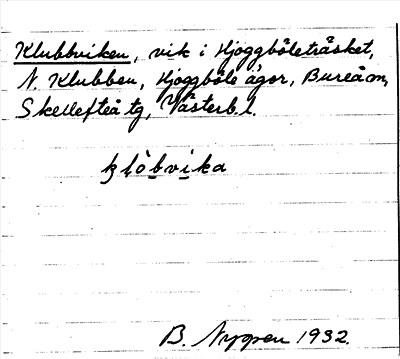 Klubbviken, vik i Hjoggböleträsket,
N. Klubben, Hjoggböle ägor, Bureå sn,
Skellefteå tg, Västerb. l.
klòbvika
B. Nygren 1932.